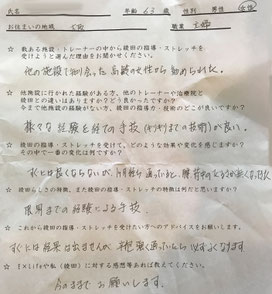 氏名 年齢 63 歳 性別 男性 女性
お住まいの地域 職業 主婦
☆ 数ある施設・トレーナーの中から綾田の指導・ストレッチを
受けようと選んだ理由をお聞かせください。
他の施設で知り合った高齢の女性から勧められた。
☆ 他施設に行かれた経験がある方、他のトレーナーや治療院と
綾田との違いはありますか?どう良かったですか?
今まで他施設経験がない方、綾田の指導力・技術のどこが良いですか?
様々な経験を経ての手技 が良い。
☆ 綾田の指導・ストレッチを受けて、どのような効果や変化を感じますか?
その中で一番の変化は何ですか?
すぐには良くならないが、 通ったあと、腰、背中の
☆ 綾田らしさの特徴、また綾田の指導・ストレッチの特徴は何だと思いますか?
限界までの経験による手技
☆ これから綾田の指導・ストレッチを受けたい方へのアドバイスをお願いします。
すぐには結果は出ませんが、根気良く通ったら必ず良くなります
☆ E×Lifeや私(綾田)に対する感想等あれば教えてください。
今のままでお願いします。